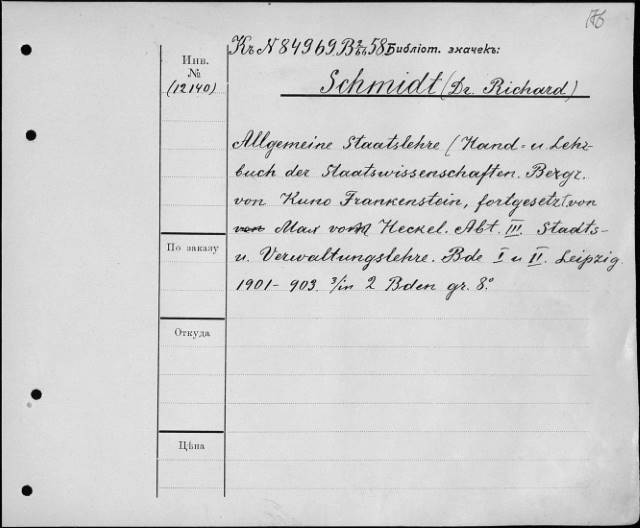 176
Къ N 84969. B 2/66 58. Библіот. значекъ:
Инв.
№
(12140)
Schmidt (Dr. Richard)
Allgemeine Staatslehre (Hand- u Lehr-
buch der Staatswissenschaften. Begr.
von Kuno Frankenstein, fortgesetzt von
Max von Heckel. Abt. III. Stadts-
По заказу
u. Verwaltungslehre. Bde I u II. Leipzig.
1901-903. 3/in 2 Bden gr. 8.°
Откуда
Цѣна